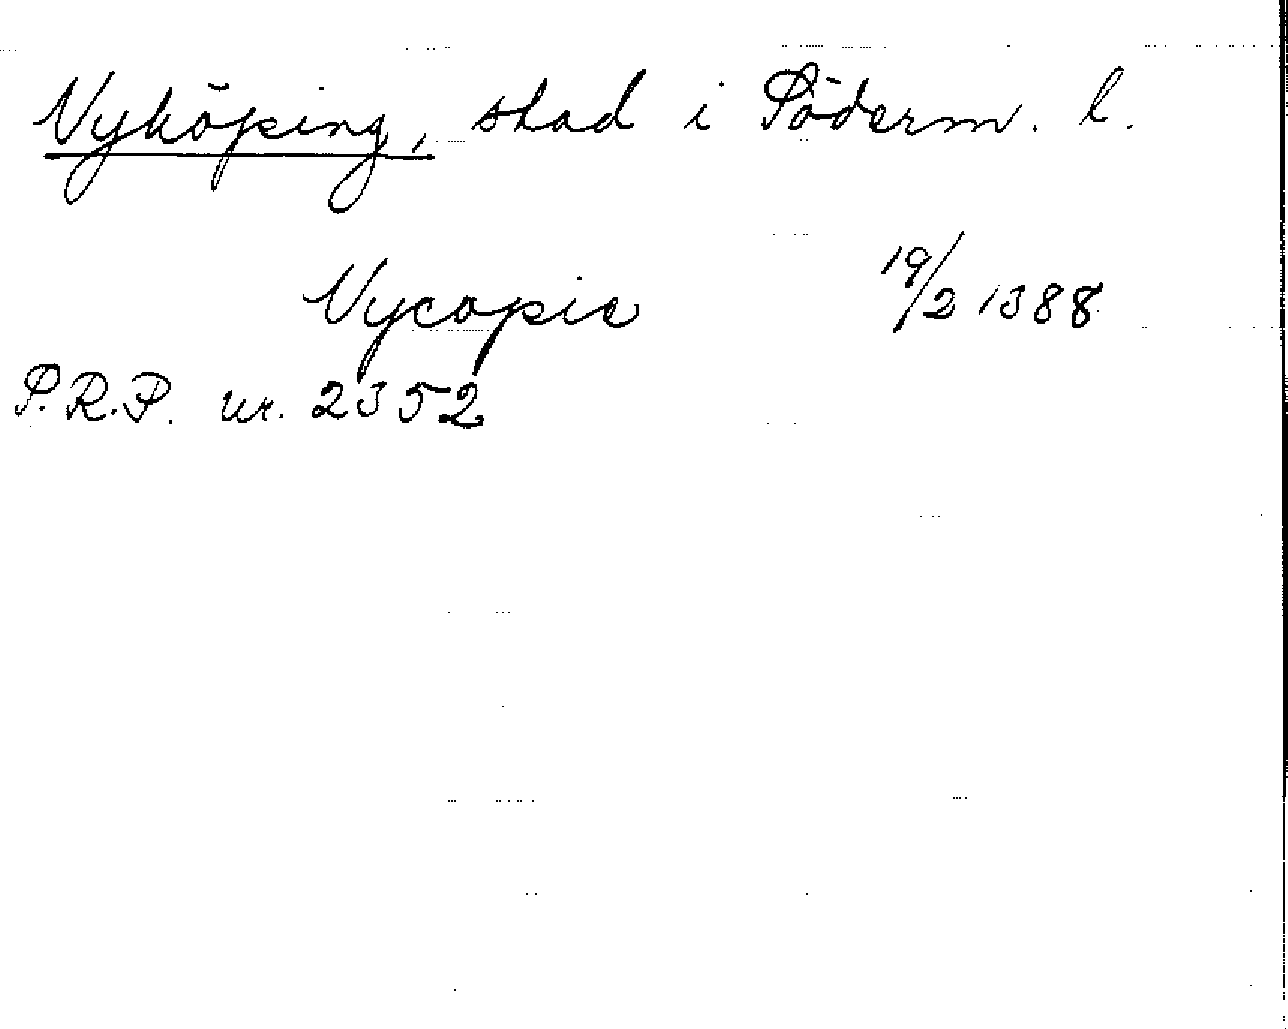 Nyköping, stad i Söderm. l.
Nycopie 19/2 1388
S.R.P. nr. 2352